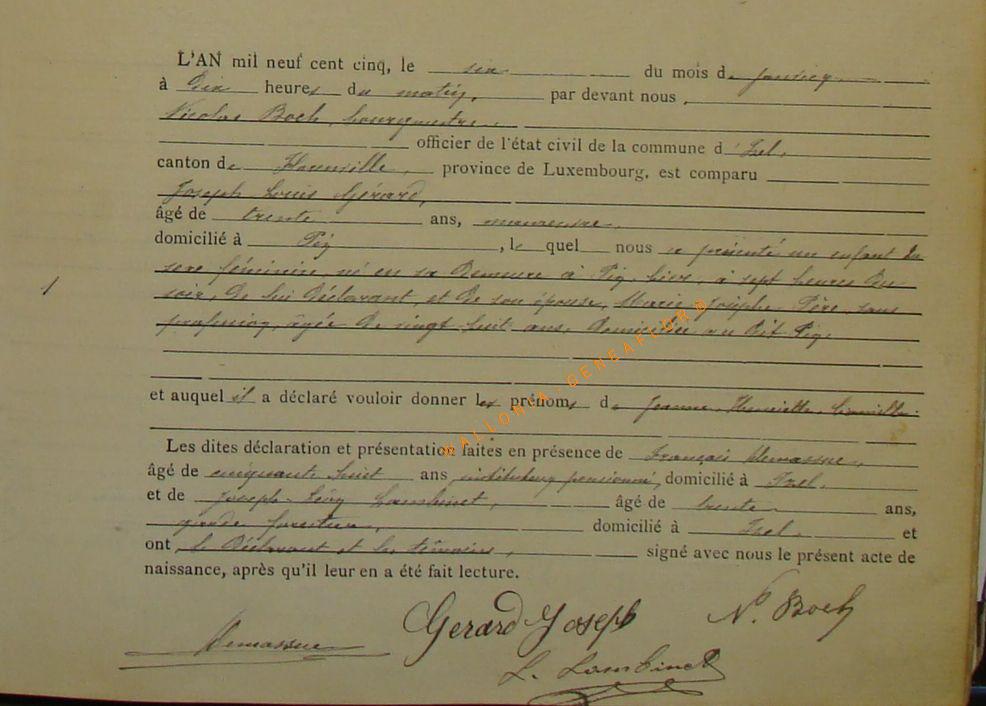 L'AN mil neuf cent cinq, le six du mois de janvier
à dix heures du matin, par devant nous,
Nicolas Boch, bourgmestre,
officier de l'état civil de la commune d'Izel,
canton de Florenville, province de Luxembourg, est comparu
Joseph Louis Gérard,
âgé de trente ans, manœuvre,
domicilié à Pin, lequel nous a présenté un enfant du
sexe féminin, né en sa demeure à Pin, hier, à sept heures du
1
soir, de lui déclarant, et de son épouse, Marie Josèphe Père, sans
profession, âgée de vingt huit ans, domiciliée au dit Pin,
et auquel il a déclaré vouloir donner les prénoms de Jeanne Henriette
Les dites déclaration et présentation faites en présence de François
âgé de cinquante huit ans instituteur pensionné, domicilié à Izel,
et de Joseph Lambinet, âgé de trente ans,
garde forestier, domicilié à Izel, et
ont le déclarant et les témoins, signé avec nous le présent acte de
naissance, après qu'il leur en a été fait lecture.
Gerard Joseph
N. Boch
L. Lambinet
WALLONIA - GENEAFLORD